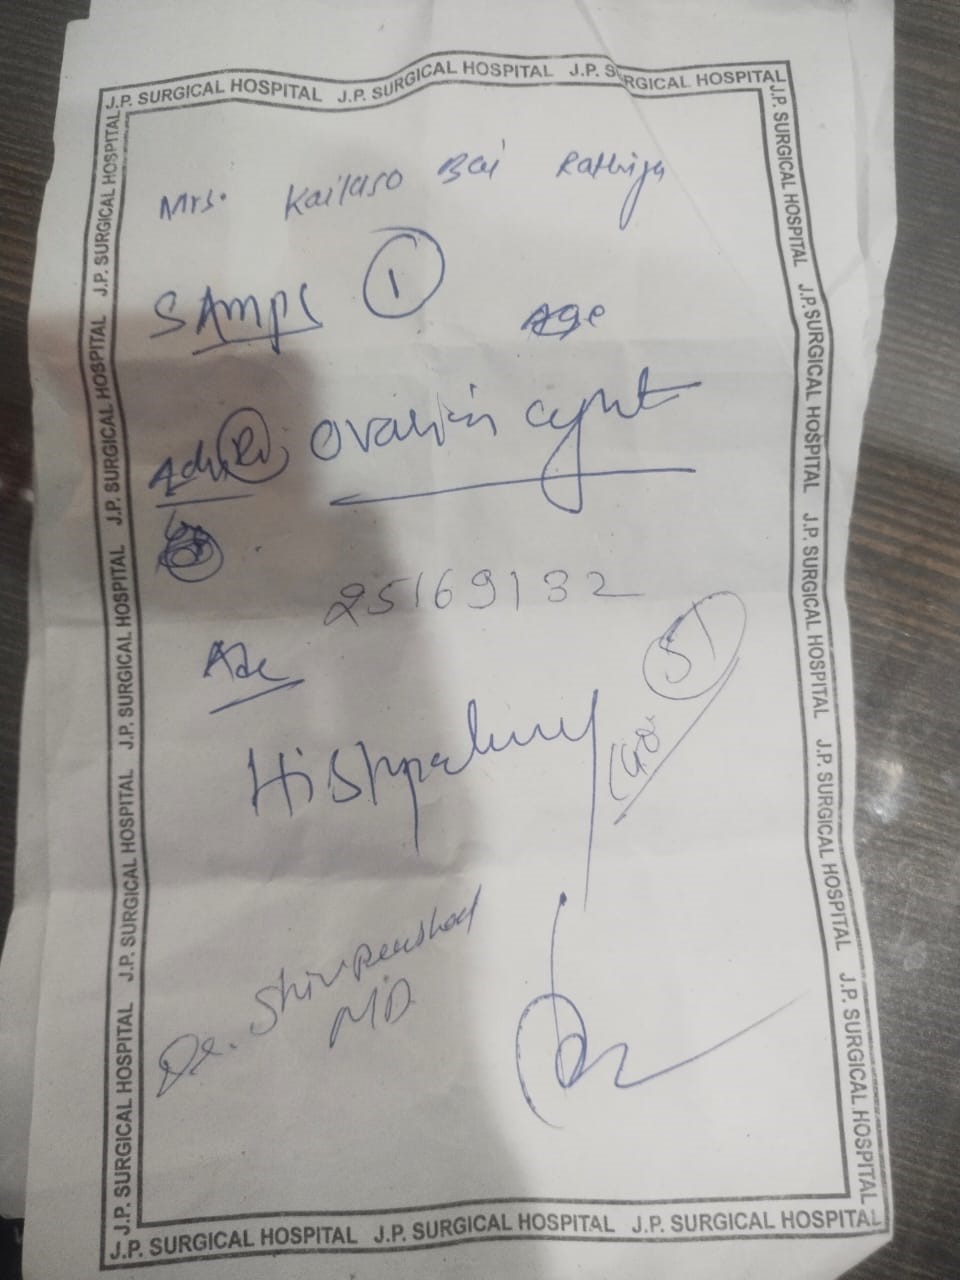 J.P. SURGICAL HOSPITAL J.P. SURGICAL HOSPITAL J.P. SURGICAL HOSPITAL
Mrs. Kailaso Bai Rathiya
SAmpl ①
Age
Adv (Rt) Ovarian cyst
25169132
Adv
Histpathy
Dr. Shiv
MD
J.P. SURGICAL HOSPITAL J.P. SURGICAL HOSPITAL J.P. SURGICAL HOSPITAL
J.P. SURGICAL HOSPITAL J.P. SURGICAL HOSPITAL J.P. SURGICAL HOSPITAL J.P. SURGICAL HOSPITAL J.P. SURGICAL HOSPITAL
J.P. SURGICAL HOSPITAL J.P. SURGICAL HOSPITAL J.P. SURGICAL HOSPITAL J.P. SURGICAL HOSPITAL J.P. SURGICAL HOSPITAL